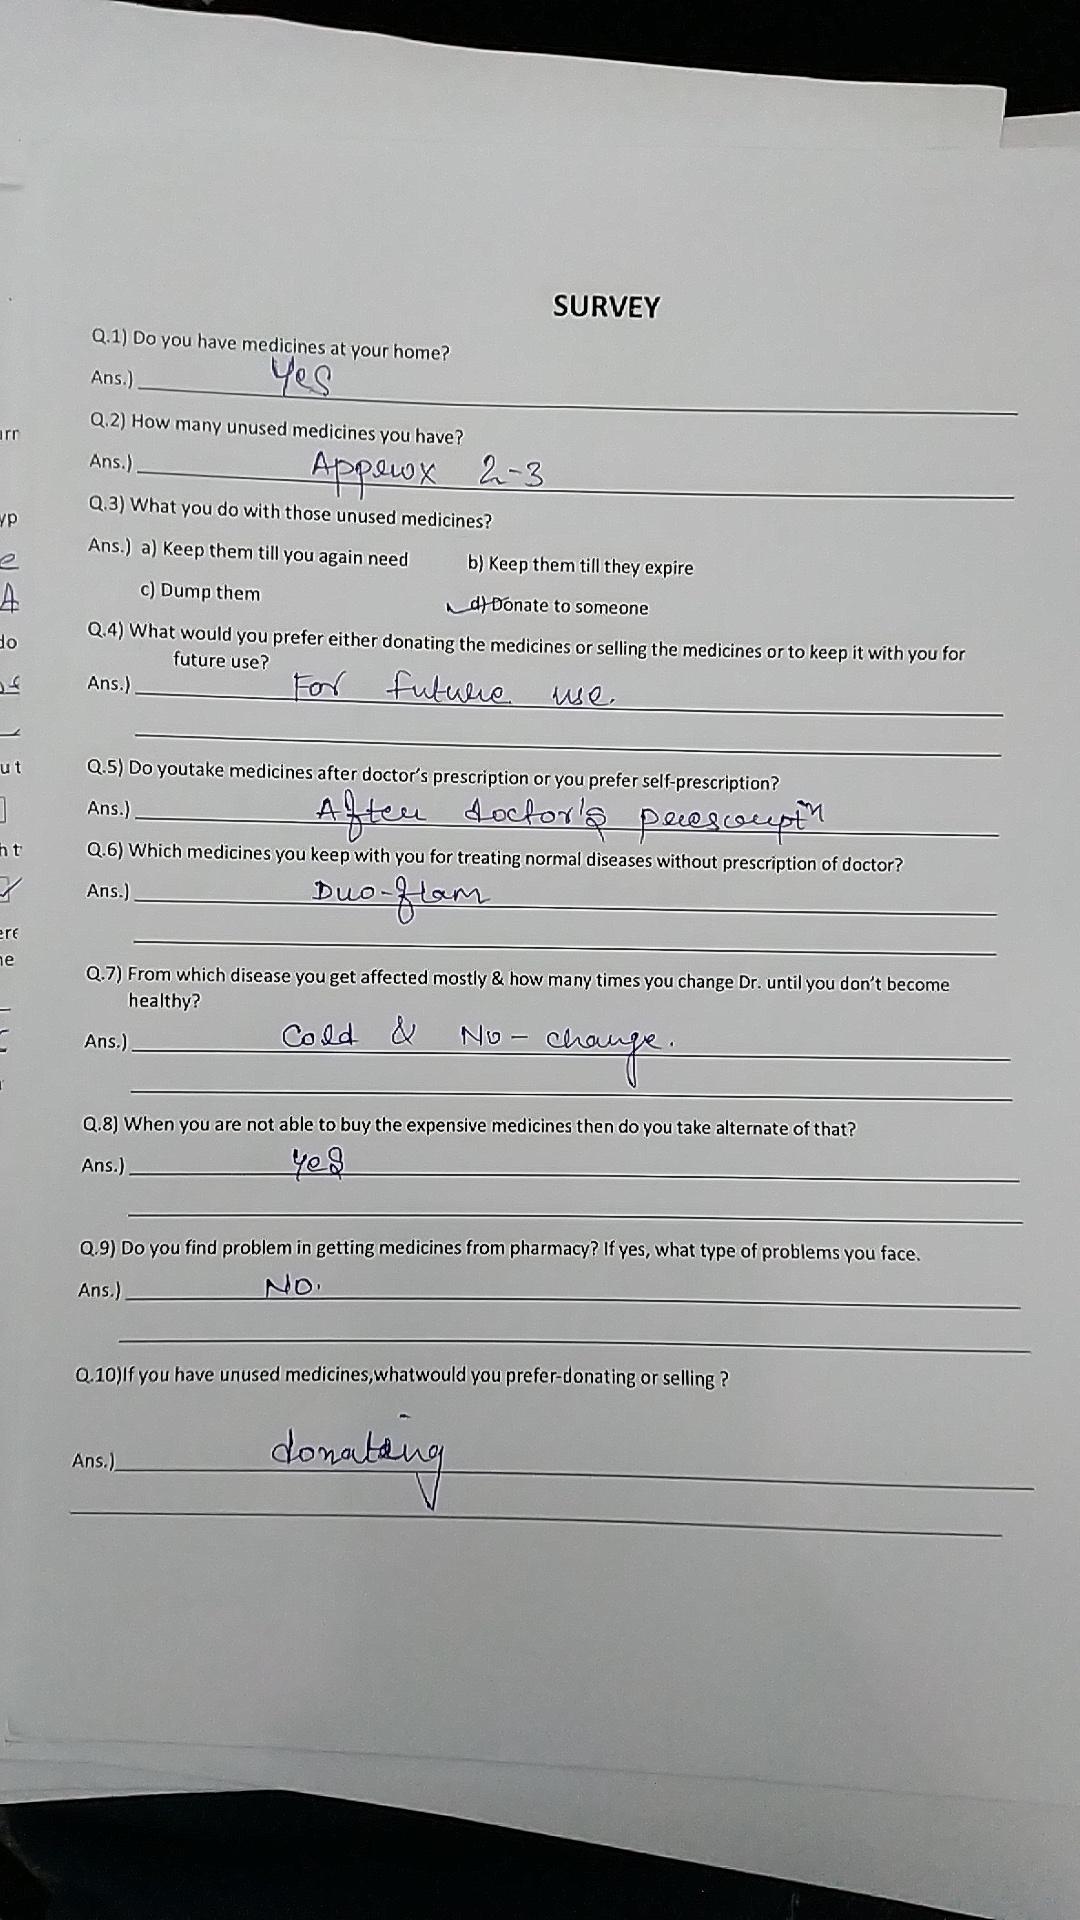 SURVEY
Q.1) Do you have medicines at your home?
Ans.) Yes
Q.2) How many unused medicines you have?
Ans.) Approx 2-3
Q.3) What you do with those unused medicines?
Ans.) a) Keep them till you again need b) Keep them till they expire
c) Dump them d) Donate to someone
Q.4) What would you prefer either donating the medicines or selling the medicines or to keep it with you for
future use?
Ans.) For future use.
Q.5) Do youtake medicines after doctor's prescription or you prefer self-prescription?
Ans.) After doctor's prescriptn
Q.6) Which medicines you keep with you for treating normal diseases without prescription of doctor?
Ans.) Duo-flam
Q.7) From which disease you get affected mostly & how many times you change Dr. until you don't become
healthy?
Ans.) Cold & No - change.
Q.8) When you are not able to buy the expensive medicines then do you take alternate of that?
Ans.) yes
Q.9) Do you find problem in getting medicines from pharmacy? If yes, what type of problems you face.
Ans.) No.
Q.10)If you have unused medicines,whatwould you prefer-donating or selling ?
Ans.) donating